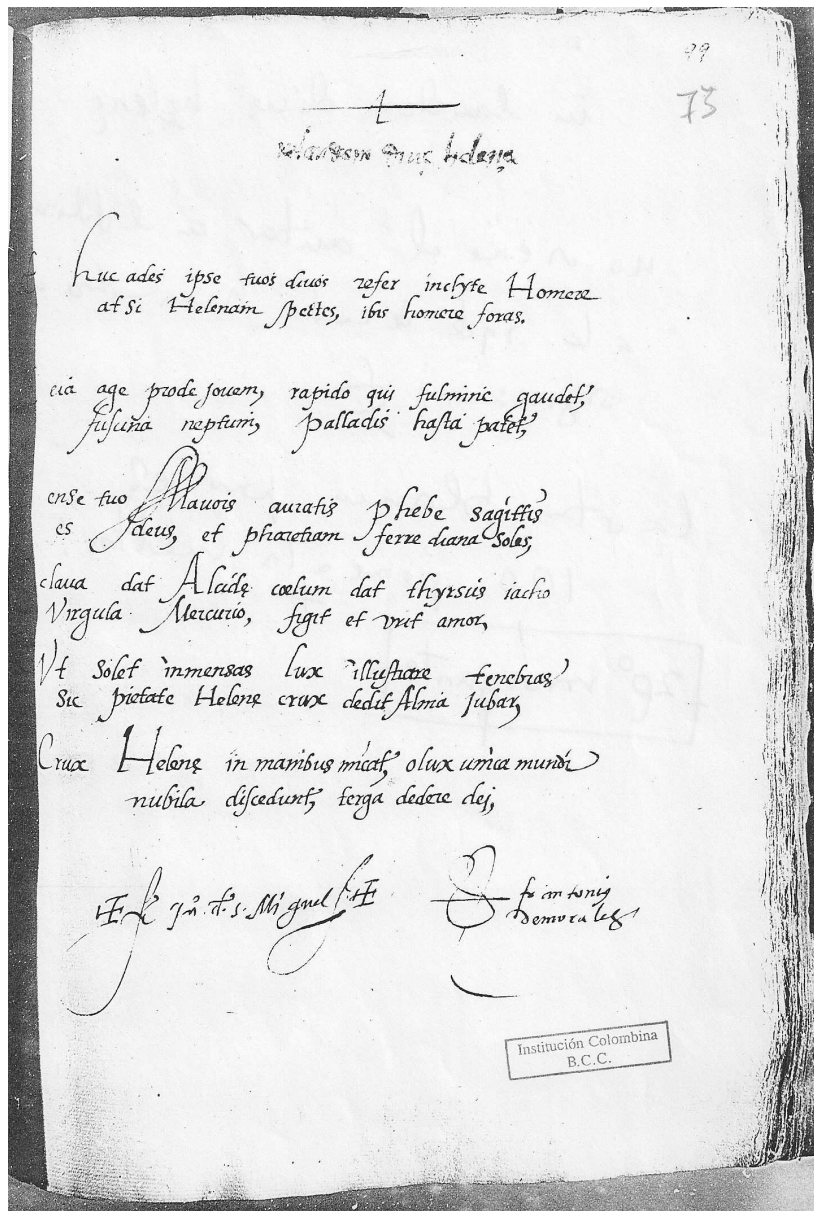 99
73
in laudem diuę helenę
huc ades ipse tuos diuos refer inclyte Homere
at Si Helenam spectes, ibis homere foras.
eia age prode jouem, rapido qui fulmine gaudet,
fuscina neptuni, palladis hasta patet,
ense tuo Mauors auratis phebe sagittis
es deus, et pharetram ferre diana Soles,
claua dat Alcidę coelum dat thyrsus iacho
Virgula Mercurio, figit et vrit amor,
Vt Solet inmensas lux illustrare tenebras
Sic pietate Helenę crux dedit Alma jubar,
Crux Helenę in manibus micat, o lux unica mundi
nubila discedunt, terga dedere dei,
fr Jn.º d. s. Miguel
fr antonio
de morales
Institución Colombina
B.C.C.